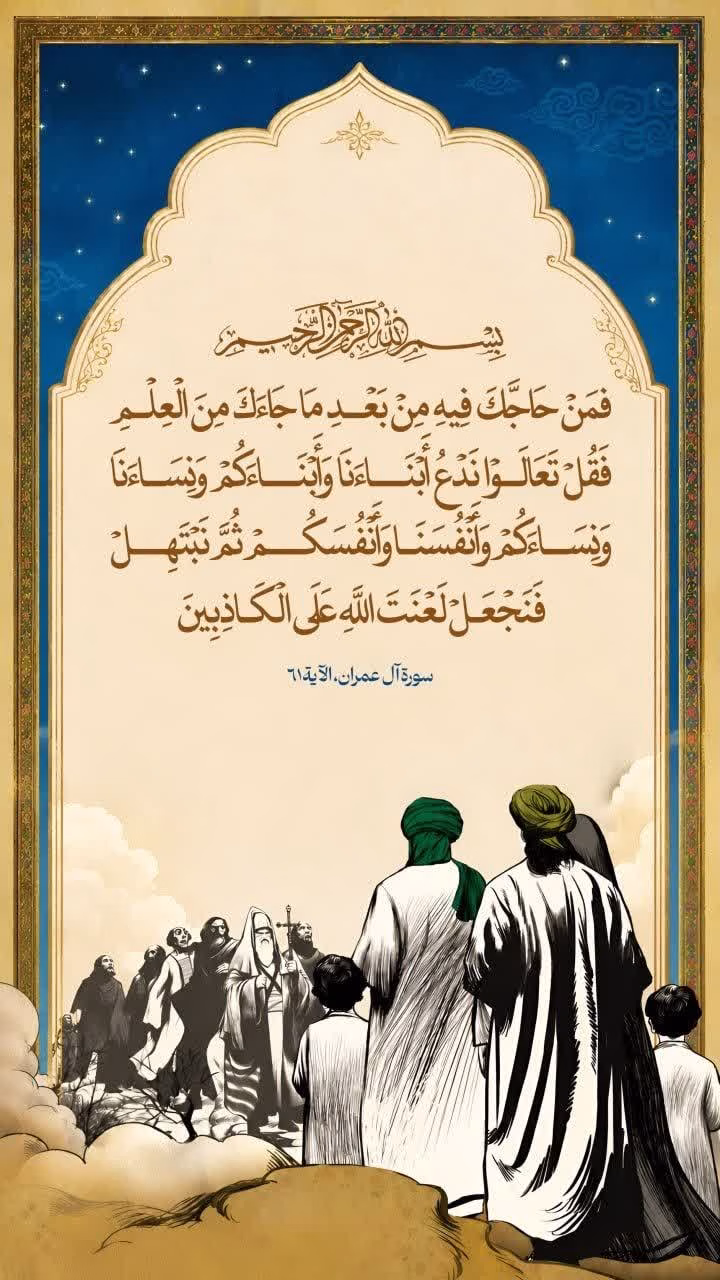 بِسْمِ اللَّهِ الرَّحْمَٰنِ الرَّحِيمِ
فَمَنْ حَاجَّكَ فِيهِ مِنْ بَعْدِ مَا جَاءَكَ مِنَ الْعِلْمِ
فَقُلْ تَعَالَوْا نَدْعُ أَبْنَاءَنَا وَأَبْنَاءَكُمْ وَنِسَاءَنَا
وَنِسَاءَكُمْ وَأَنْفُسَنَا وَأَنْفُسَكُمْ ثُمَّ نَبْتَهِلْ
فَنَجْعَلْ لَعْنَتَ اللَّهِ عَلَى الْكَاذِبِينَ
سورة آل عمران، الآية ٦١